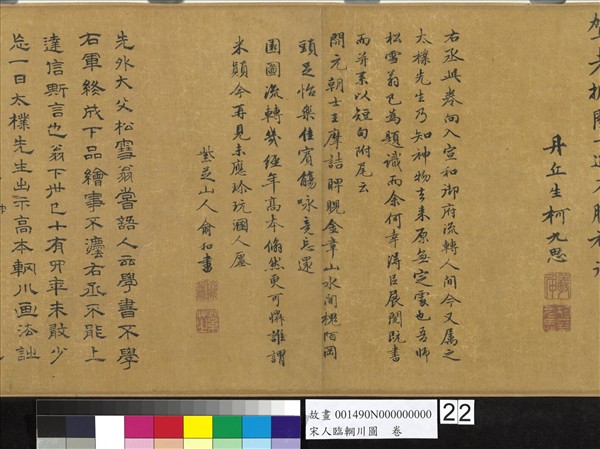 丹丘生柯九思
右丞此卷向入宣和御府流轉人間今又屬之
太樸先生乃知神物去來原無定處也吾師
松雪翁已為題識而余何幸得臣展閱既書
而并系以短句附尾云
開元朝士王摩詰睥睨金章山水間槐陌岡
頭足怡樂佳賓觴詠竟忘還
圖流轉幾經年高本翛然更可憐誰謂
米顛今再見未應珍玩溷人廛
紫芝山人俞和書
先外大父松雪翁嘗語人云學書不學
右軍終成下品繪事不師右丞不能上
達信斯言也翁下世已十有年未敢少
忘一日太樸先生出示高本輞川画法
故畫 001490N000000000
宋人臨輞川圖 卷
22